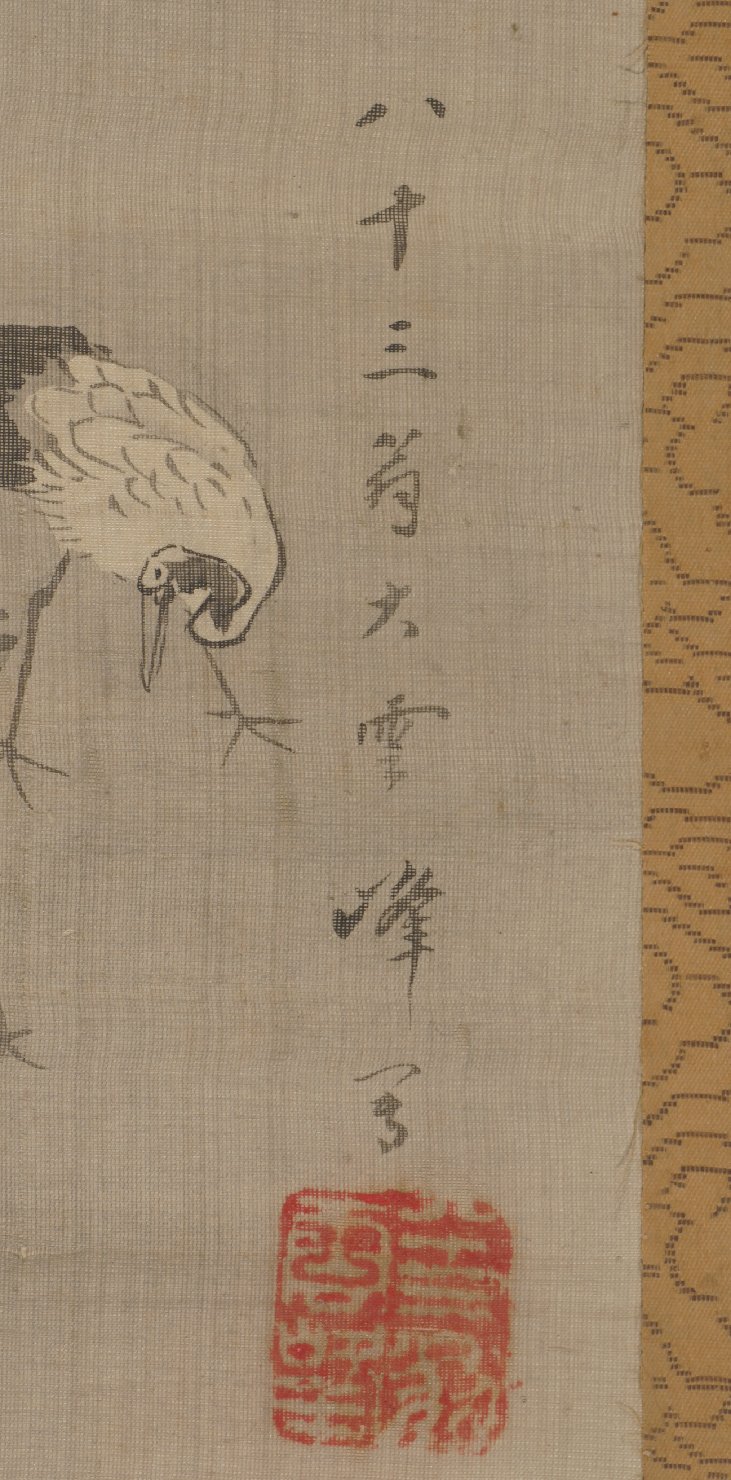 八十三翁大雲峰写